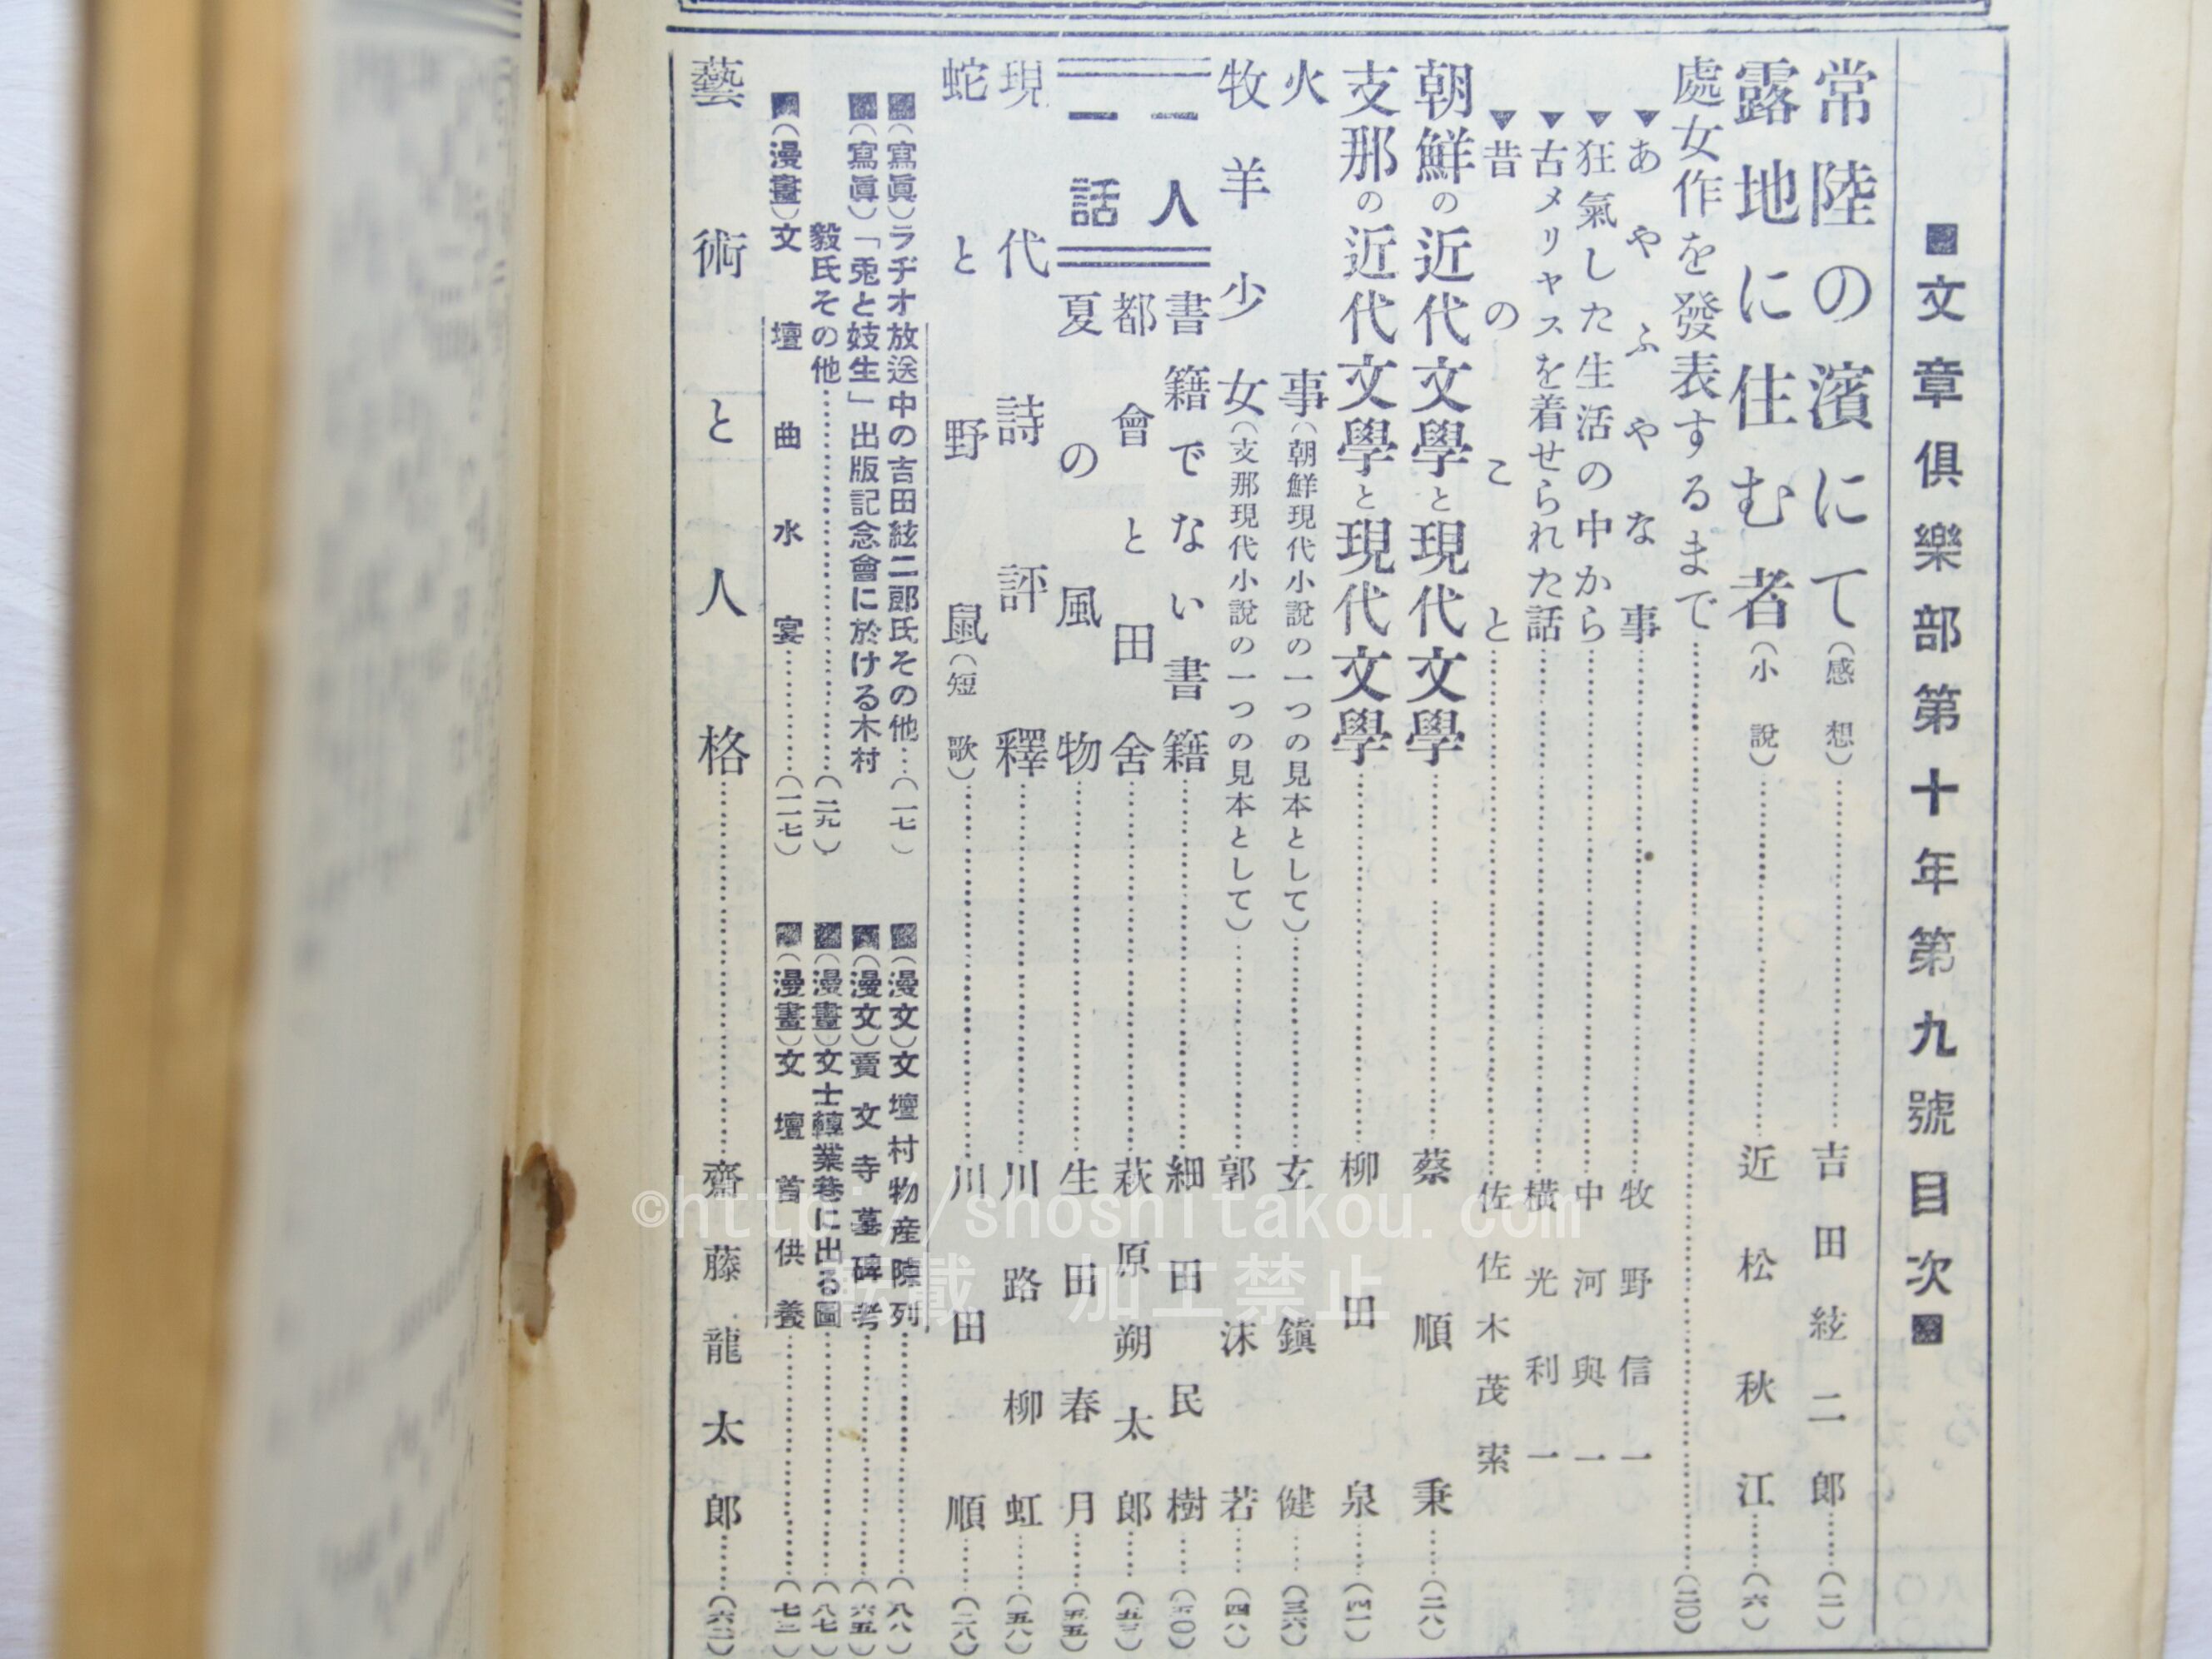 ■文章倶樂部第十年第九號目次■
常陸の濱にて（感想）……吉田絃二郎……（二）
露地に住む者（小說）……近松秋江……（六）
處女作を發表するまで……（二〇）
▼あやふやな事……牧野信一
▼狂氣した生活の中から……中河與一
▼古メリヤスを着せられた話……橫光利一
▼昔のこと……佐佐木茂索
朝鮮の近代文學と現代文學……蔡順秉……（二八）
支那の近代文學と現代文學……柳田泉……（四一）
火事（朝鮮現代小說の一つの見本として）……玄鎭健……（三六）
牧羊少女（支那現代小說の一つの見本として）……郭沫若……（四八）
一人一話
書籍でない書籍……細田民樹……（五〇）
都會と田舍……萩原朔太郎……（五三）
夏の風物……生田春月……（五五）
現代詩評釋……川路柳虹……（五八）
蛇と野鼠（短歌）……川田順……（二八）
■（寫眞）ラヂオ放送中の吉田絃二郎氏その他…（一七）
■（寫眞）「兎と妓生」出版記念會に於ける木村
毅氏その他……（二九）
■（漫畫）文壇曲水宴……（一一七）
■（漫文）文壇村物産陳列……（八八）
■（漫文）賣文寺墓碑考……（六五）
■（漫畫）文士轉業巷に出る圖……（八七）
■（漫畫）文壇首供養……（七三）
藝術と人格……齋藤龍太郎……（六二）
©http://shoshitakou.com
転載　加工禁止